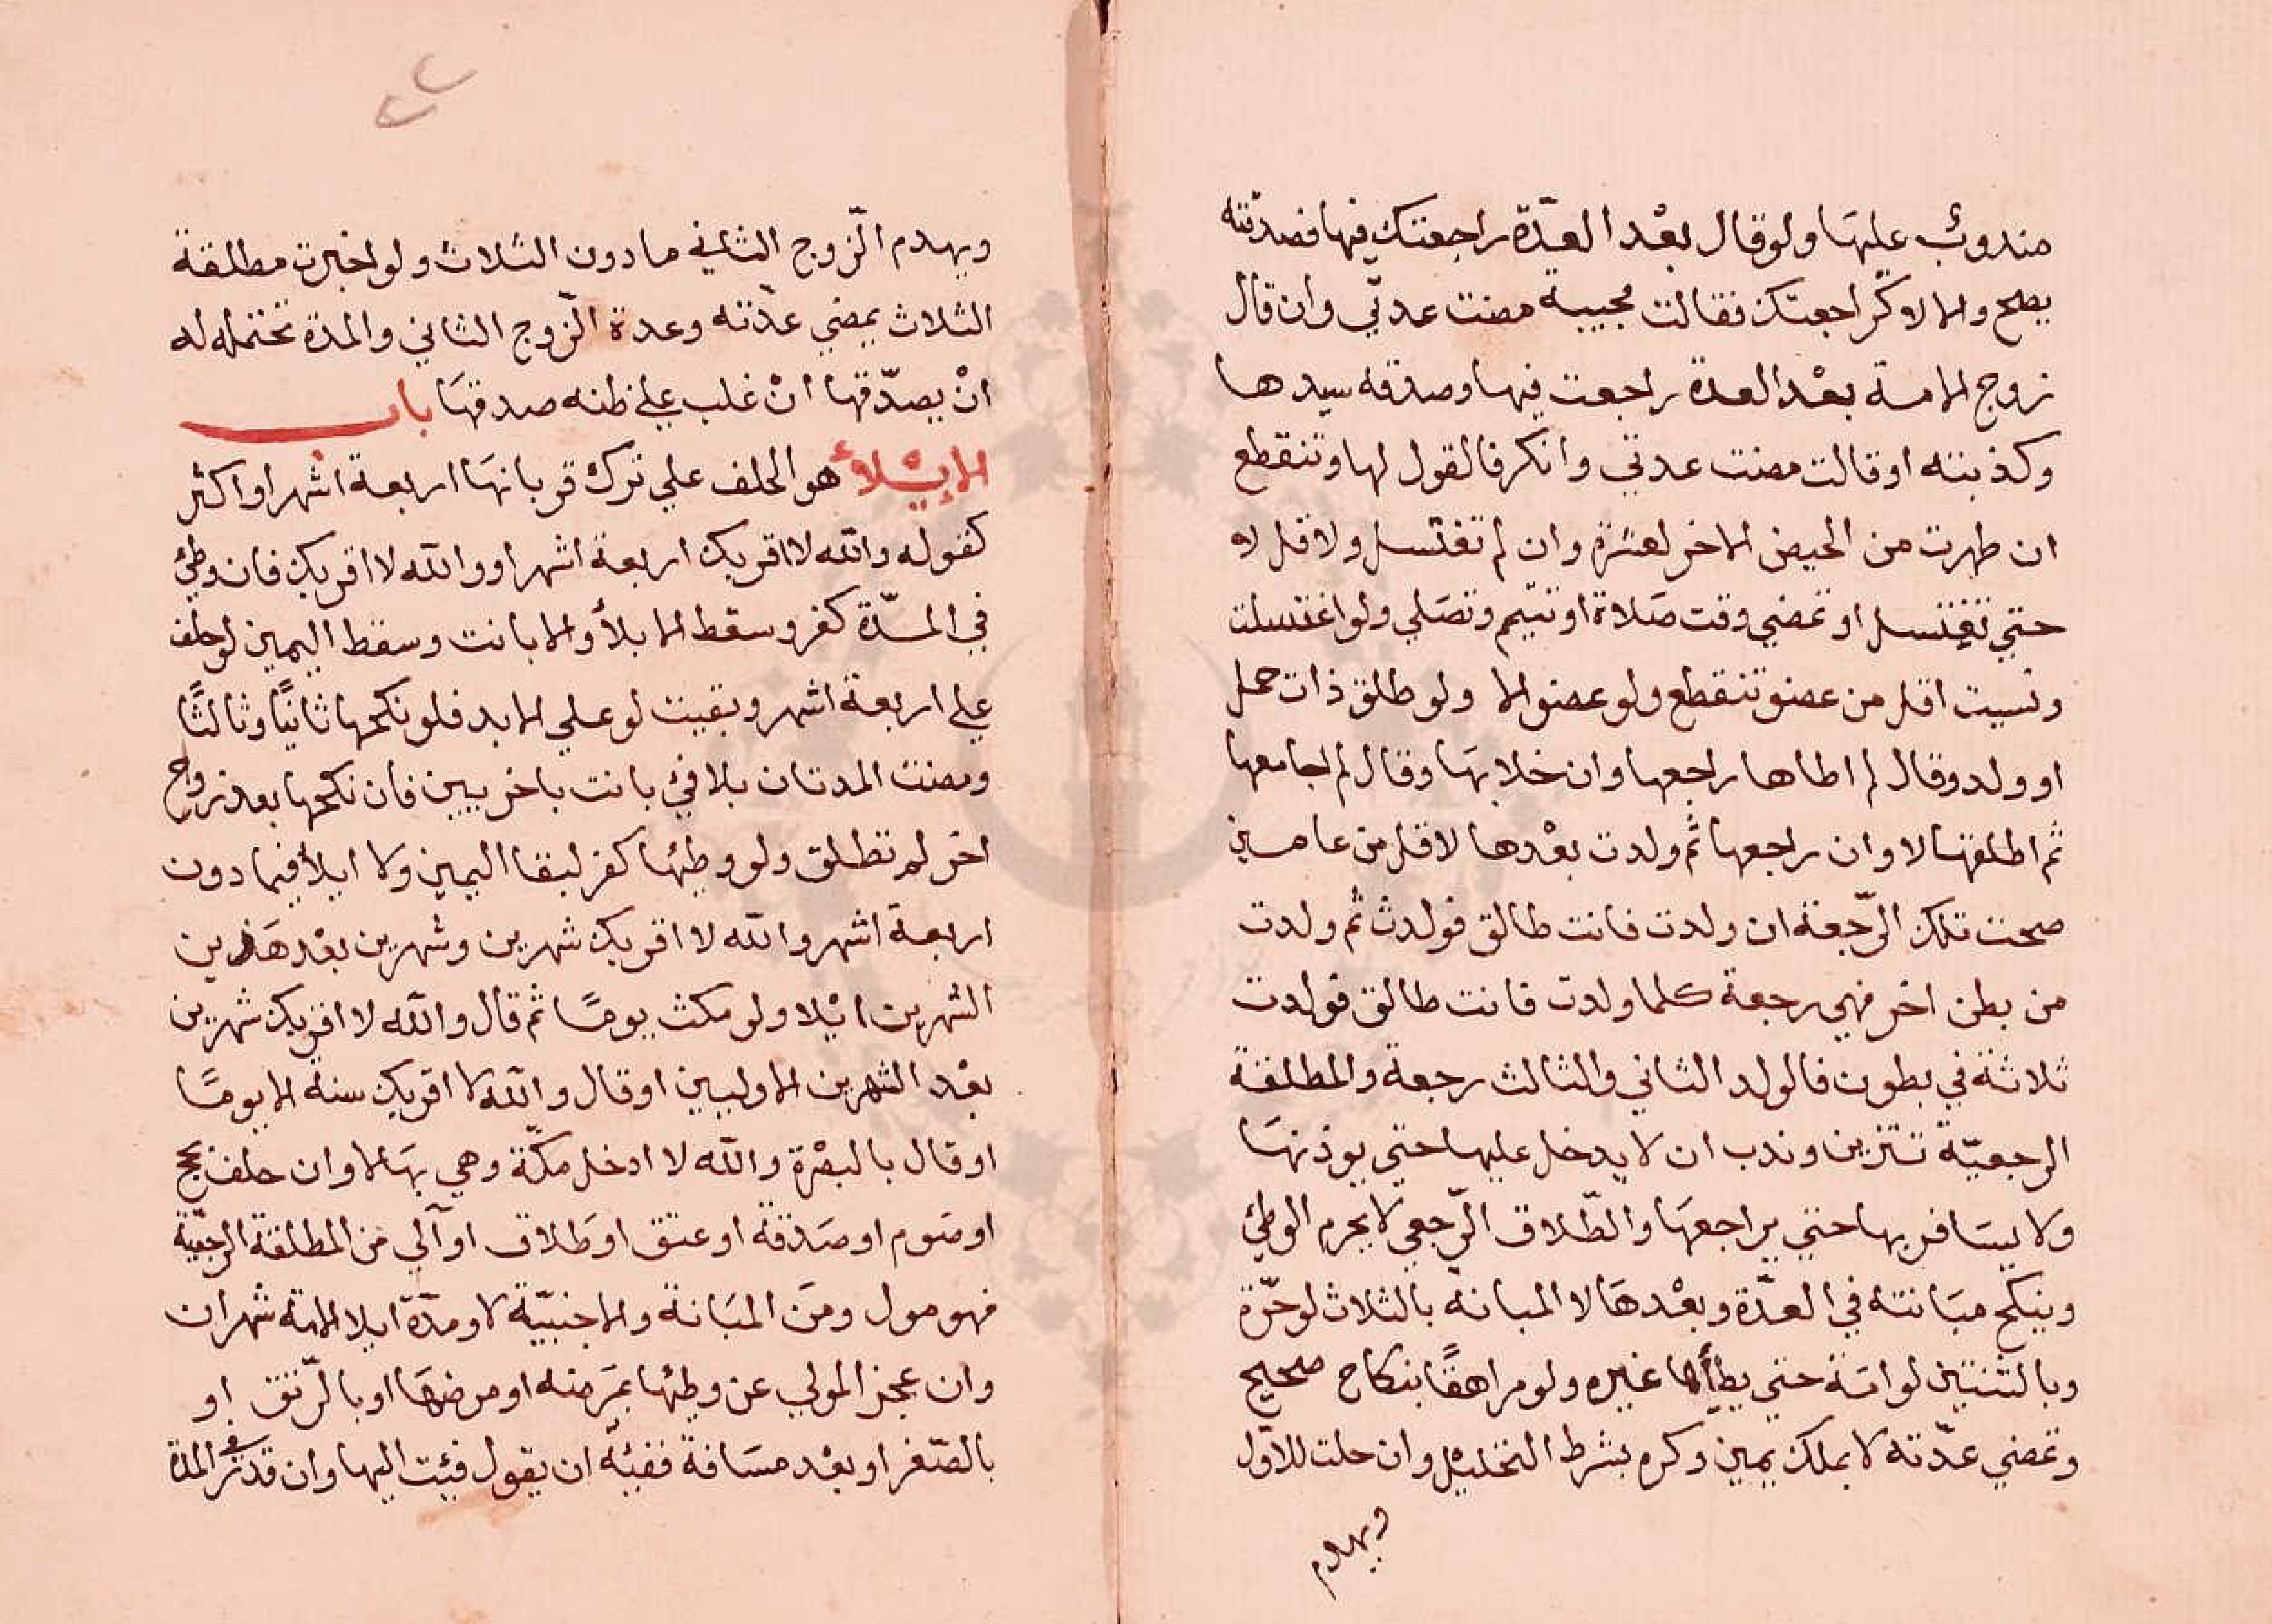 مندوبٌ عليهَا ولو قال بعْد العدّة راجعتك فيها فصدقته
يصح والا لا كراجعتك فقالت مجيبة مضت عدتي وان قال
زوج الامة بعْد العدة راجعت فيها وصدقه سيدها
وكذبته او قالت مضت عدتي وانكر فالقول لها وتنقطع
ان طهرت من الحيض الاخر لعشرة وان لم تغتسل ولاقل لا
حتي تغتسل او تمضي وقت صَلاة او تتيم وتصَلي ولو اغتسلت
ونسيت اقل من عضو تنقطع ولو عضو لا ولو طلق ذات حمل
او ولد وقال لم اطاها راجعها وان خلا بهَا وقال لم اجامعها
ثم اطلقها لا وان راجعها ثم ولدت بعْدها لاقل من عامين
صحت تلك الرّجعة ان ولدت فانت طالق فولدت ثم ولدت
من بطن اخر فهي رجعة كلما ولدت فانت طالق فولدت
ثلاثة في بطون فالولد الثاني والثالث رجعة والمطلقة
الرجعيّة تتزين وندب ان لا يدخل عليها حتي يوذنهَا
ولا يسَافر بها حتي يراجعهَا والطّلاق الرّجعي لا يحرم الوطئ
وينكح مبَانته في العدّة وبعْدهَا لا المبانة بالثلاث لو حرّة
وبالثنتين لو امَة حتي يطأها غيره ولو مراهقًا بنكاح صحيح
وتمضي عدّته لا بملك يمين وكره بشرط التحليل وان حلت للاوّل
ويهدم
ويهدم الزّوج الثاني ما دون الثلاث ولو اخبرت مطلقة
الثلاث بمضي عدّته وعدة الزّوج الثاني والمدة تحتمله له
انْ يصدّقها انْ غلب علي ظنه صدقهَا باب
الايْلاء هو الحلف علي ترك قربانهَا اربعة اشهر او اكثر
كقوله والله لا اقربك اربعة اشهر او والله لا اقربك فان وطئ
في المدّة كفر وسقط الايلأ والا بانت وسقط اليمين لو حلف
علي اربعة اشهر وبقيت لو علي الابد فلو نكحها ثانيًا وثالثًا
ومضت المدتان بلا فئ بانت باخريين فان نكحها بعد زوج
اخر لم تطلق ولو وطئها كفر لبقا اليمين ولا ايلأ فيما دون
اربعة اشهر والله لا اقربك شهرين وشهرين بعْد هَذين
الشهرين ايْلا ولو مكث يومًا ثم قال والله لا اقربك شهرين
بعْد الشهرين الاوليين او قال والله لا اقربك سنة الا يومًا
او قال بالبصْرة والله لا ادخل مكّة وهي بهَا لا وان حلف بحج
او صَوم او صَدقة او عتق او طَلاق او آلي من المطلقة الرجعيّة
فهو مول ومن المبَانة والاجنبيّة لا ومدّة ايلا الامة شهران
وان عجز المولي عن وطئها بمَرضه او مرضهَا او بالرّتق او
بالصّغر او بعْد مسَافة ففيئه ان يقول فئت اليها وان قدر في المدة